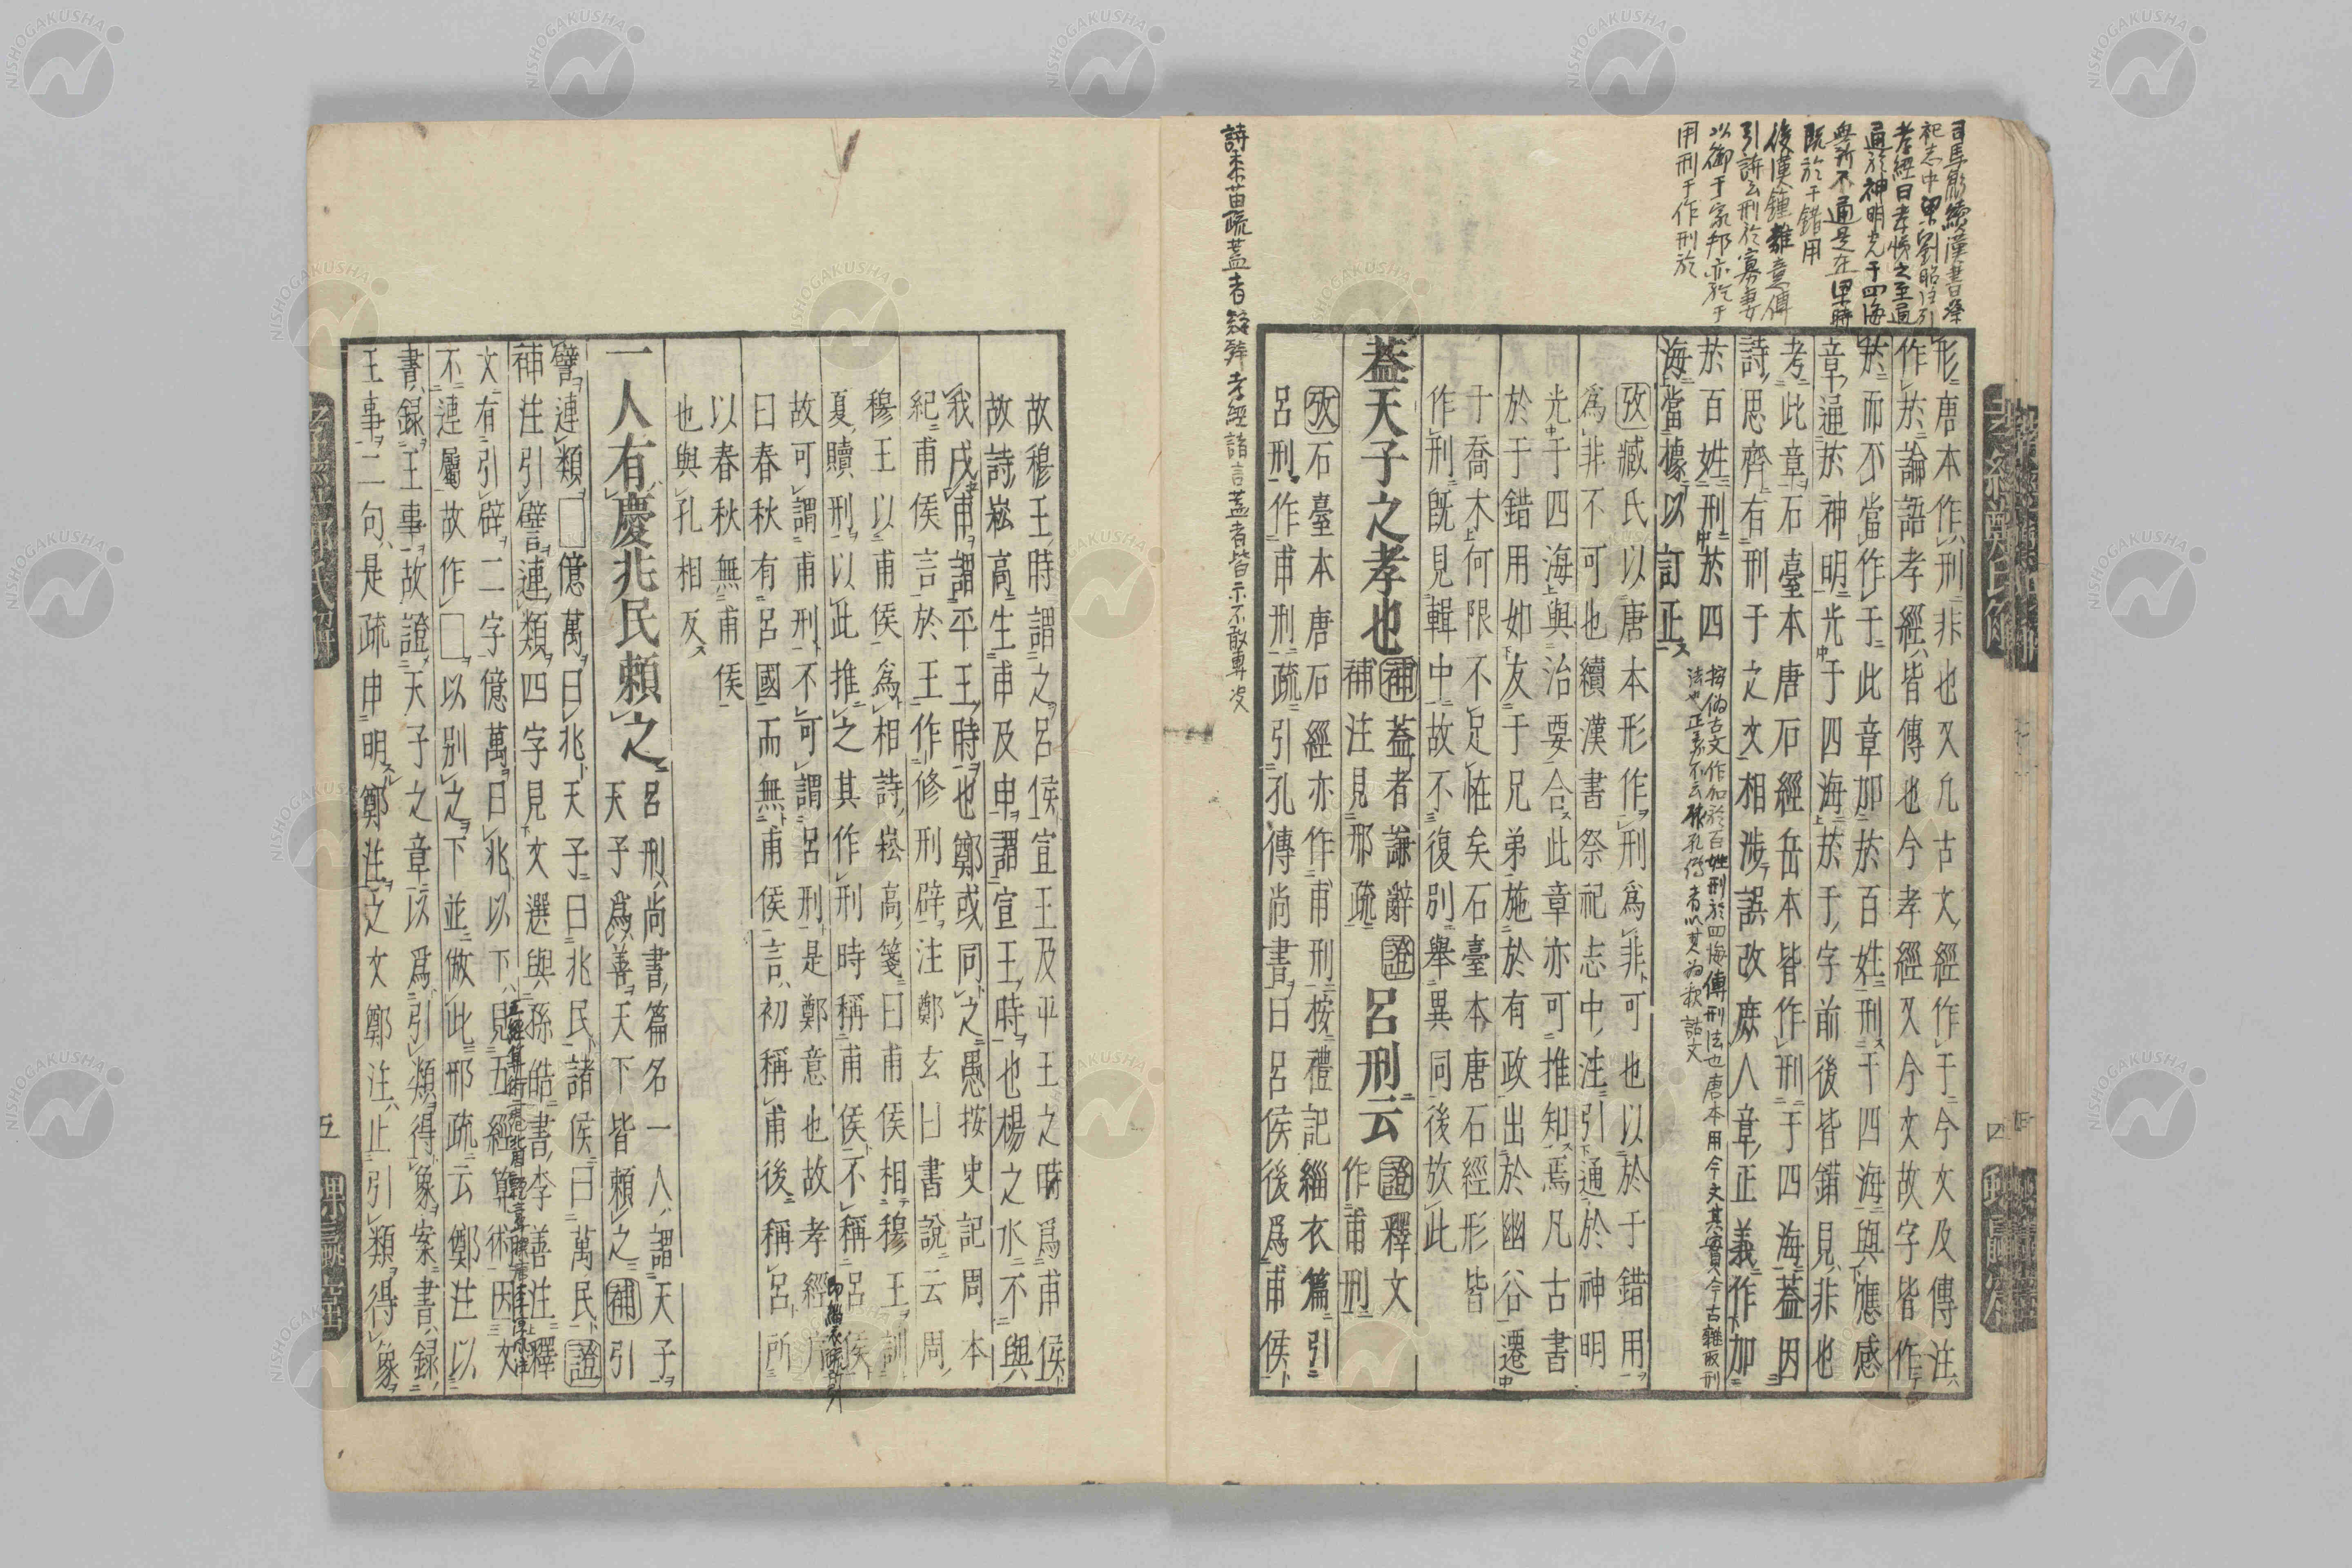 形唐本作刑非也又凡古文經作于今文及傳注
作於論語孝經皆傳也今孝經又今文故字皆作
於而不當作于此章加於百姓刑于四海與應感
章通於神明光于四海於于字前後皆錯見非也
考此章石臺本唐石經岳本皆作刑于四海蓋因
詩思齊有刑于之文相涉誤改庶人章正義作加
於百姓刑於四
海當據以訂正
攷臧氏以唐本形作刑爲非可也以於于錯用
爲非不可也續漢書祭祀志中注引通於神明
光于四海與治要合此章亦可推知焉凡古書
於于錯用如友于兄弟施於有政出於幽谷遷
于喬木何限不足怪矣石臺本唐石經形皆
作刑既見輯中故不復別舉異同後放此
蓋天子之孝也
補蓋者謙辭證
補注見邢疏
呂刑云
證釋文
作甫刑
攷石臺本唐石經亦作甫刑按禮記緇衣篇引
呂刑作甫刑疏引孔傳尚書曰呂侯後爲甫侯
司馬彪續漢書祭
祀志中梁劉昭注引
孝經曰孝悌之至通
於神明光于四海
無所不通是在梁時
既於于錯用
後漢鍾離意傳
引詩云刑於寡妻
以御于家邦亦於于
用刑于作刑於
按偽古文作加於百姓刑於四海傳刑法也唐本用今文其實今古雜取刑
詩黍苗疏蓋者疑辭孝經諸言蓋者皆示不敢專決
四
故穆王時謂之呂侯宣王及平王之時爲甫侯
故詩崧高生甫及申謂宣王時也楊之水不與
我戍甫謂平王時也鄭或同之愚按史記周本
紀甫侯言於王作修刑辟注鄭玄曰書說云周
穆王以甫侯爲相詩崧高箋曰甫侯相穆王訓
夏贖刑以此推之其作刑時稱甫侯不稱呂侯
故可謂甫刑不可謂呂刑是鄭意也故孝經
曰春秋有呂國而無甫侯言初稱甫後稱呂所
以春秋無甫侯
也與孔相反
一人有慶兆民賴之
呂刑尚書篇名一人謂天子
天子爲善天下皆賴之補引
譬連類□億萬曰兆天子曰兆民諸侯曰萬民證
補注引譬連類四字見文選與孫皓書李善注釋
文有引辟二字億萬曰兆以下見五經算術因文
不連屬故作□以別之下並倣此邢疏云鄭注以
書錄王事故證天子之章以爲引類得象案書錄
王事二句是疏申明鄭注之文鄭注止引類得象
五